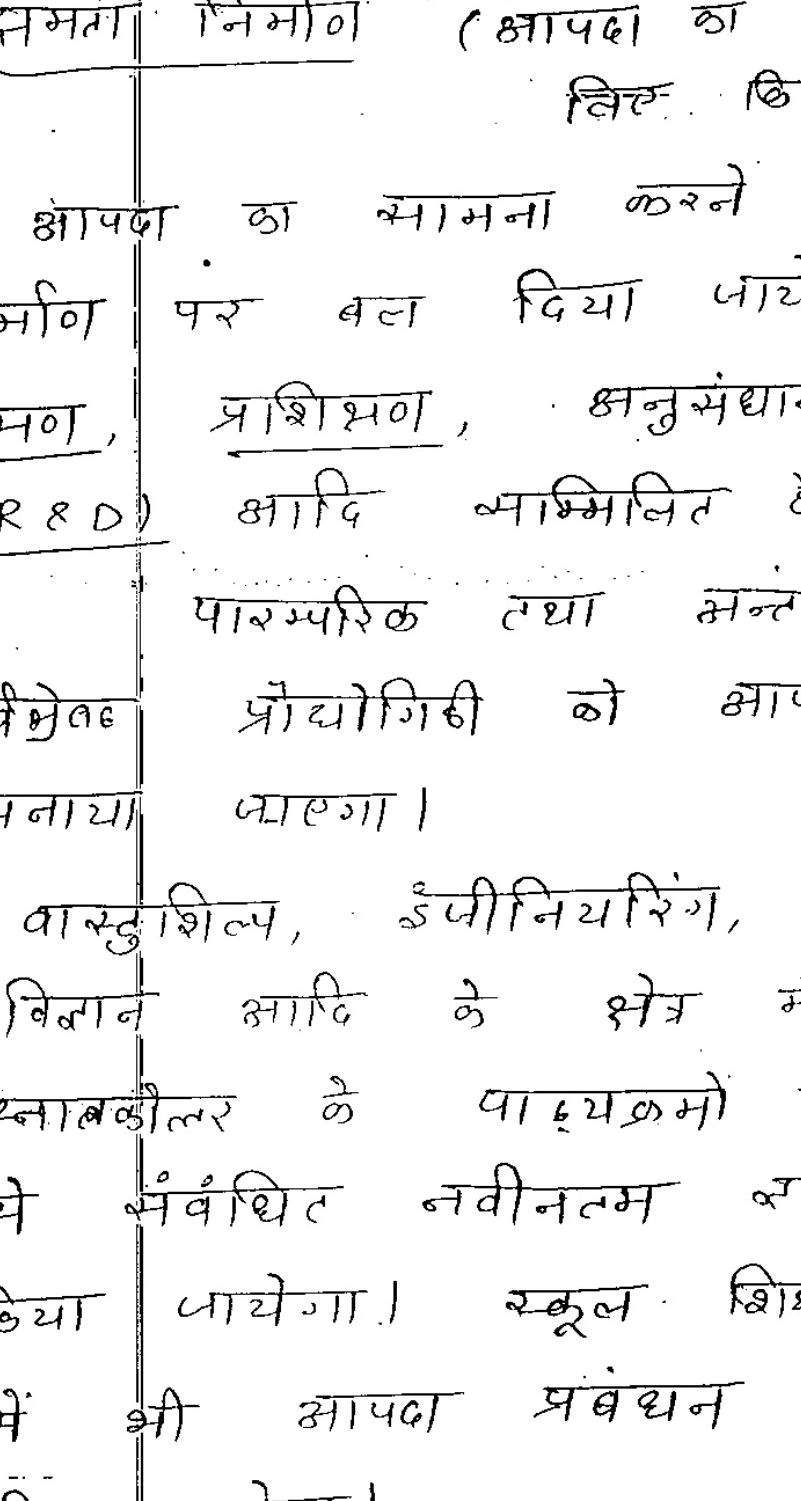 क्षमता निर्माण (आपदा का
लिए कि
आपदा का सामना करने
र्माण पर बल दिया जाये
क्षण, प्राशिक्षण, अनुसंधान
R & D) आदि सम्मिलित है
पारम्परिक तथा अन्त
प्रौद्योगिकी को आप
नाया जाएगा।
वास्तुशिल्प, इंजीनियरिंग,
विज्ञान आदि के क्षेत्र में
स्नातकोत्तर के पाठ्यक्रमों
से संबंधित नवीनतम स
किया जायेगा। स्कूल शिक्ष
में भी आपदा प्रबंधन